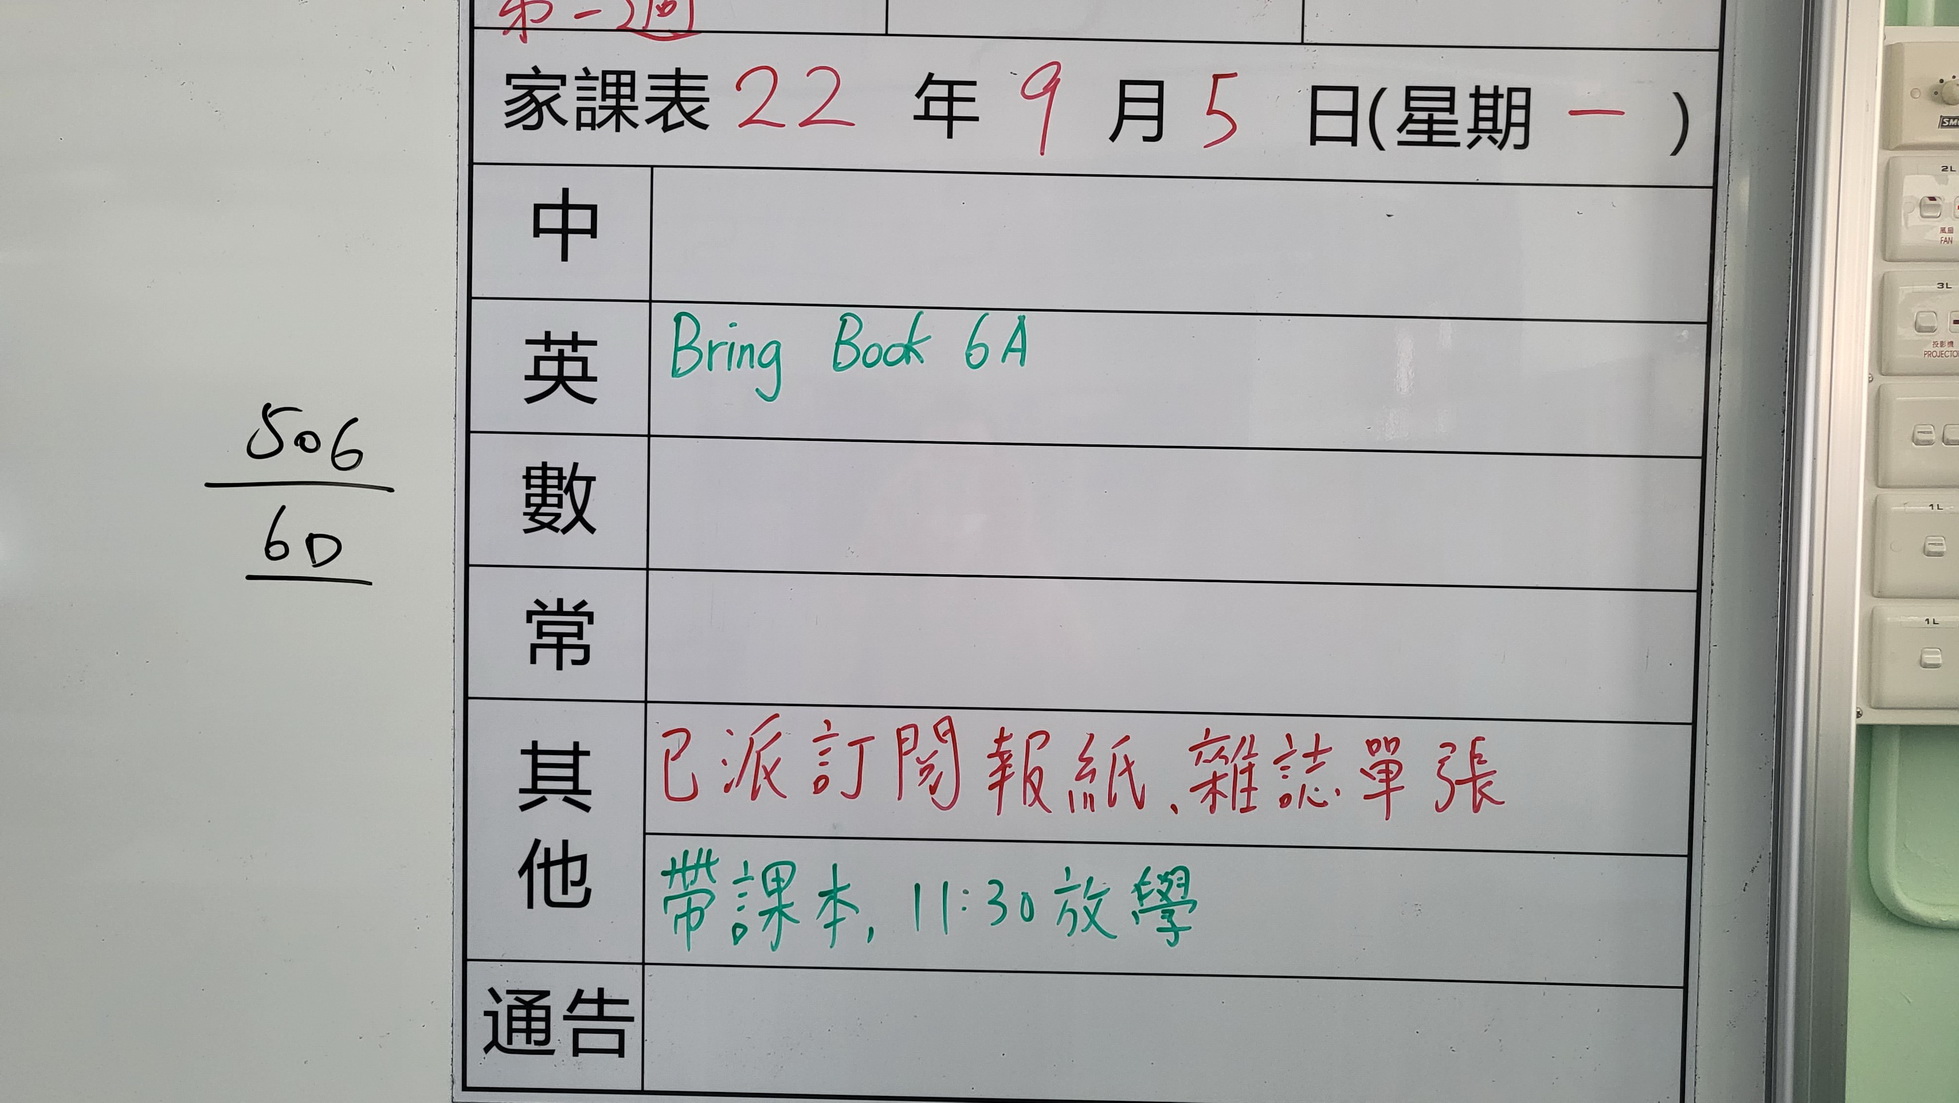 第一週
家課表 22 年 9 月 5 日(星期 一 )
中
英 Bring Book 6A
數
常
其他
已派訂閱報紙、雜誌單張
帶課本, 11:30放學
通告
506
6D
2L
風扇
FAN
3L
投影機
1L
1L